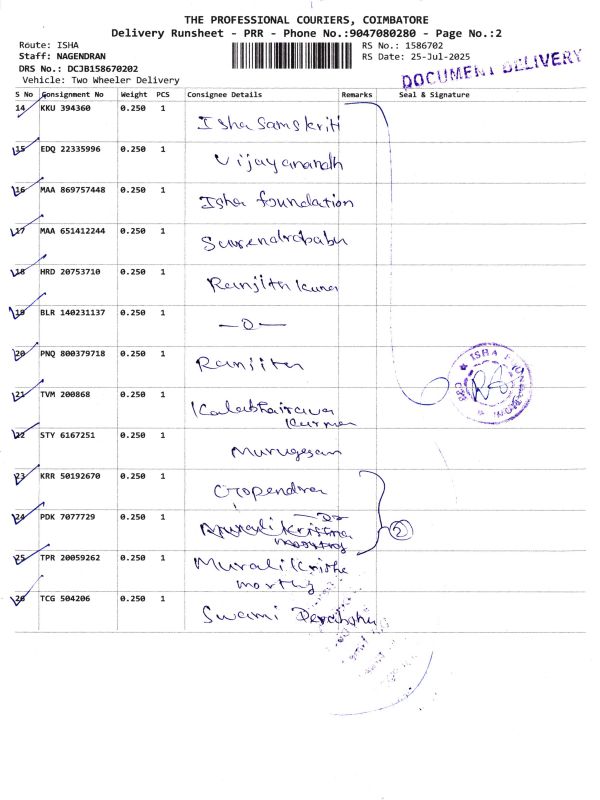 THE PROFESSIONAL COURIERS, COIMBATORE
Delivery Runsheet - PRR - Phone No.:9047080280 - Page No.:2
Route: ISHA
Staff: NAGENDRAN
DRS No.: DCJB158670202
Vehicle: Two Wheeler Delivery
RS No.: 1586702
RS Date: 25-Jul-2025
DOCUMENT DELIVERY
S No Consignment No Weight PCS Consignee Details Remarks Seal & Signature
14 KKU 394360 0.250 1
Isha Samskriti
15 EDQ 22335996 0.250 1
Vijayanandh
16 MAA 869757448 0.250 1
Isha foundation
17 MAA 651412244 0.250 1
Surendrababu
18 HRD 20753710 0.250 1
Ranjith Kumar
19 BLR 140231137 0.250 1
—0—
20 PNQ 800379718 0.250 1
Ranjith
ISHA
21 TVM 200868 0.250 1
Kalabhairava
22 STY 6167251 0.250 1
Murugesan
23 KRR 50192670 0.250 1
Gopendra
24 PDK 7077729 0.250 1
2
25 TPR 20059262 0.250 1
Murali Krishna
morthy
26 TCG 504206 0.250 1
Swami